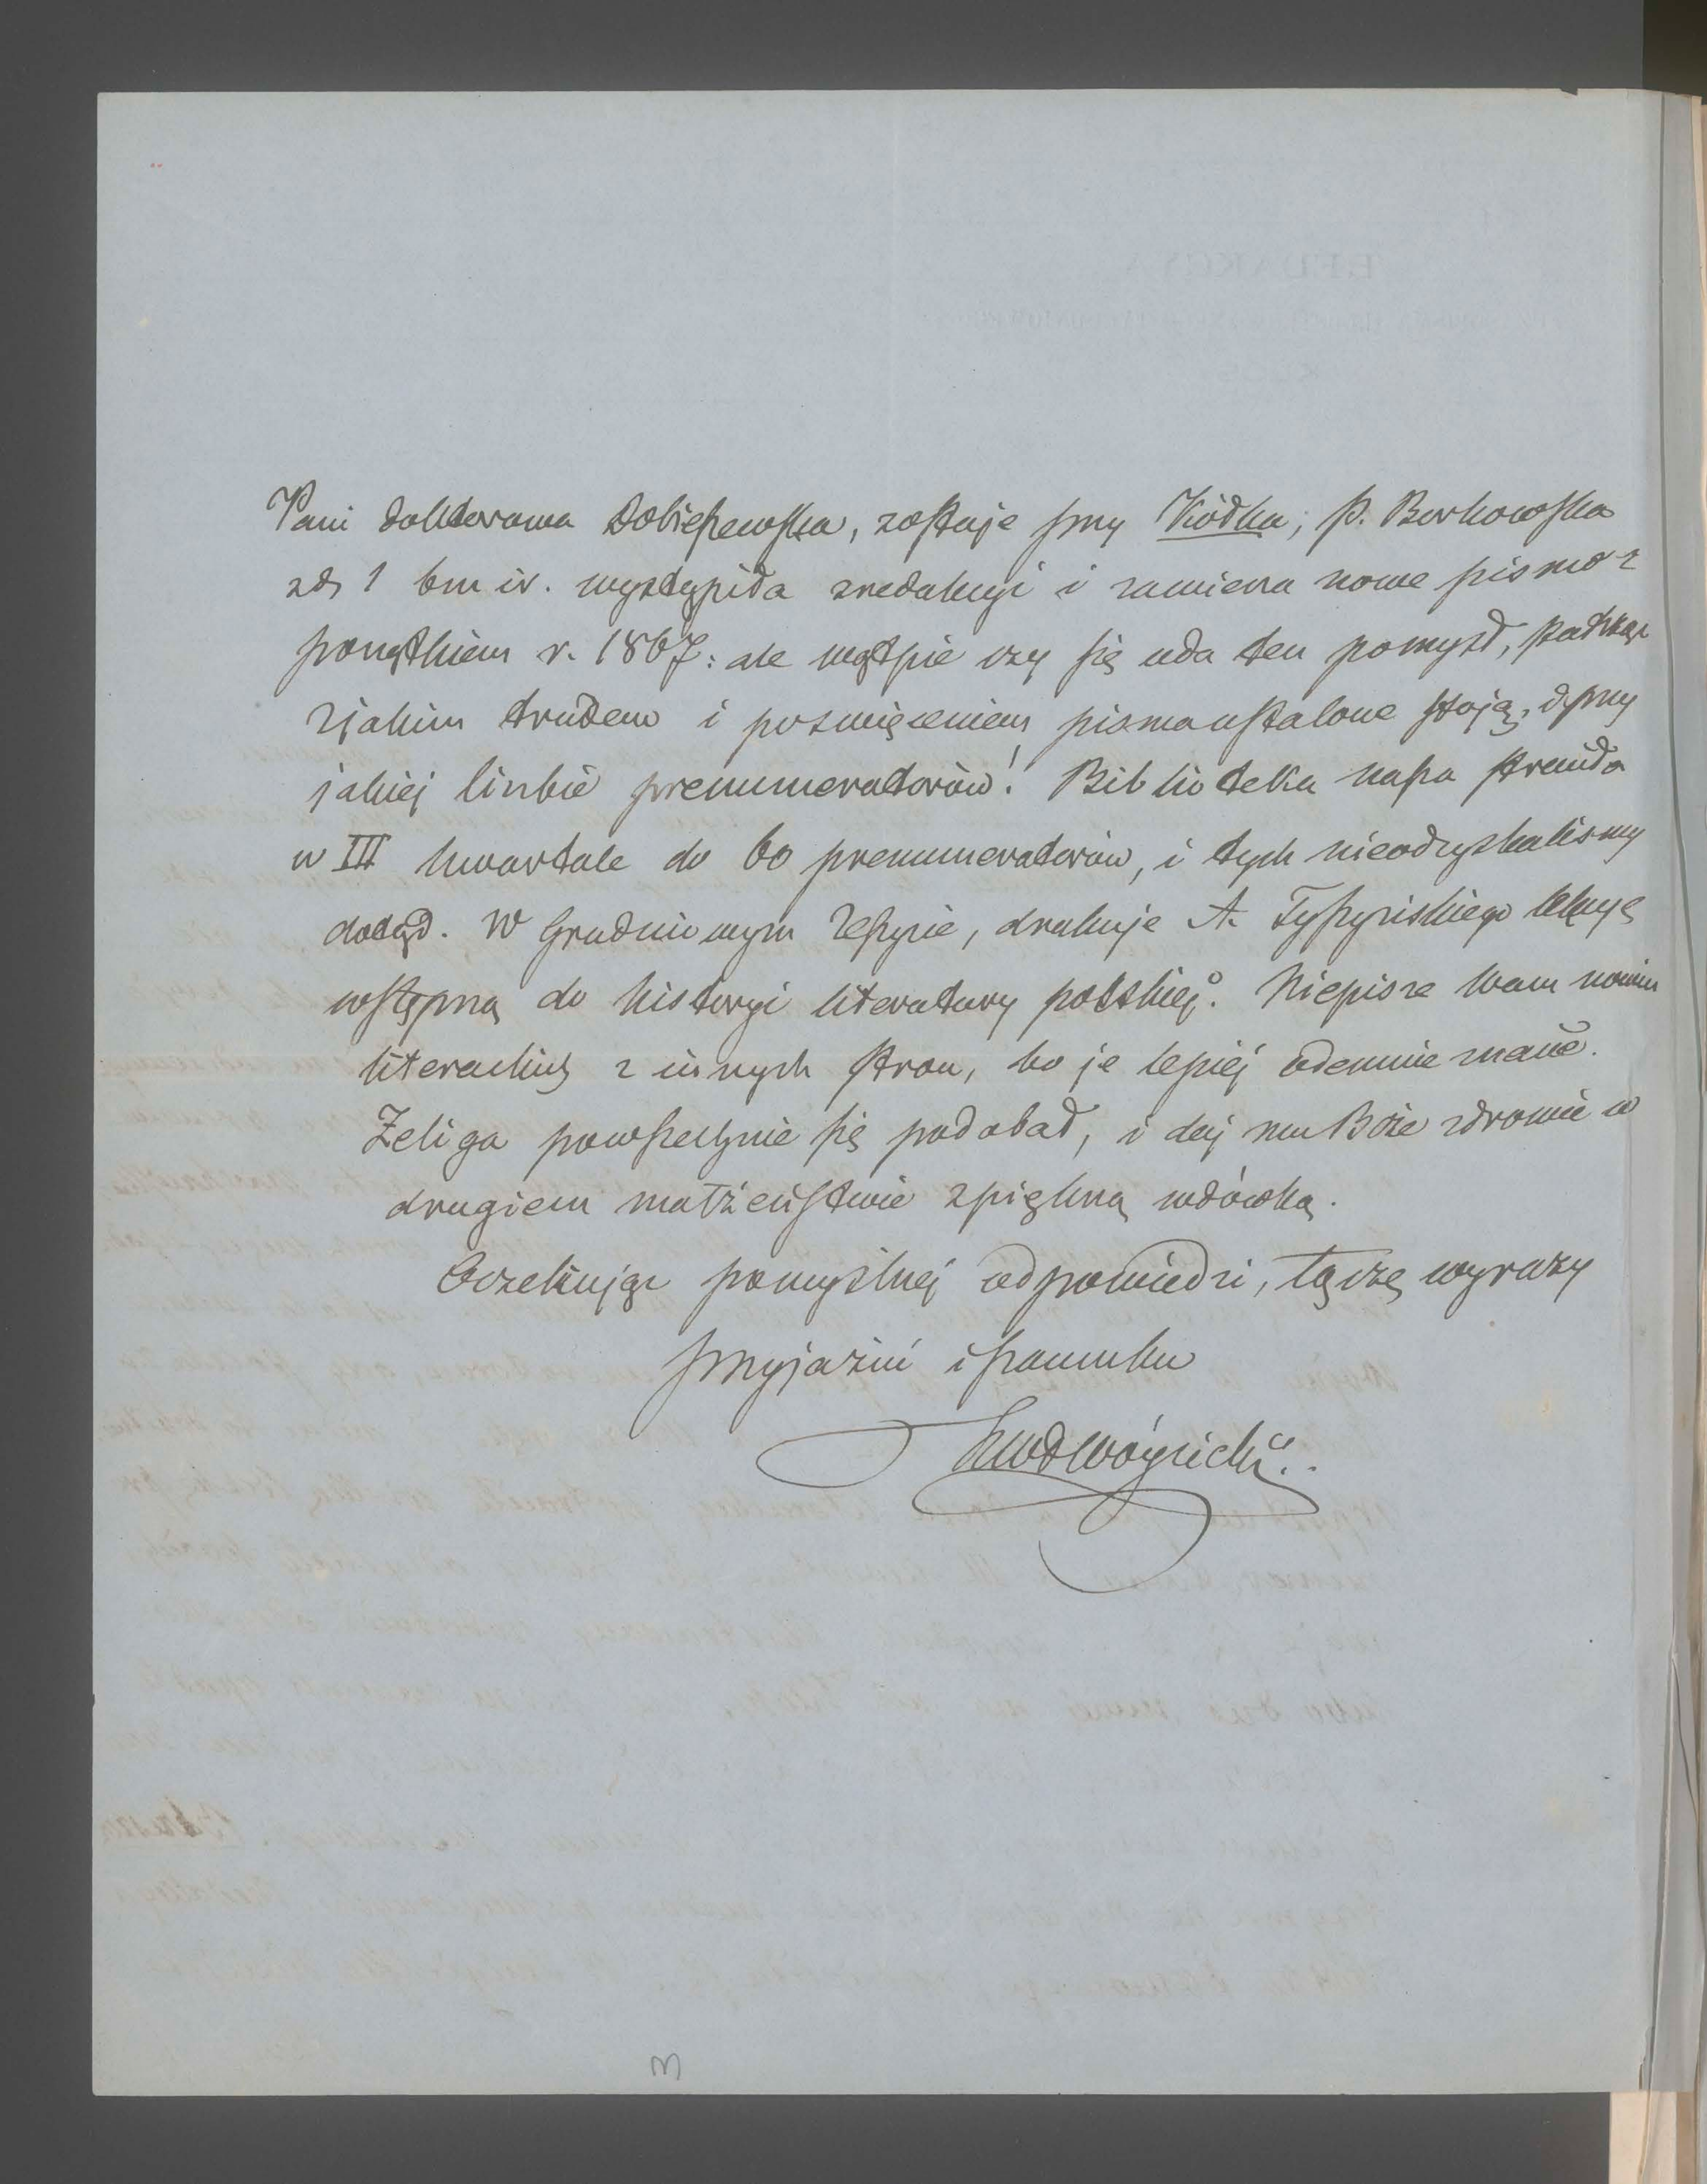 Pani doktorowa Dobieszewska, zostaje przy Kółku; p. Borkowska
zd. 1 bm ir. wystąpiła zredakcyi i zamierza nowe pismo z
początkiem r. 1867: ale wątpię czy się uda ten pomysł, patrząc
zjakim trudem i poświęceniem pisma ustalone stoją, i przy
jakiej liczbie prenumeratorów! Biblioteka nasza straciła
w III kwartale do 60 prenumeratorów, i tych nieodzyskaliśmy
dotąd. W Grudniowym Zeszycie, drukuje A. Tyszyńskiego lekcyę
wstępną do historyi literatury polskiej. Niepiszę Wam nowin
literackich z innych stron, bo je lepiej odemnie znacie.
Żeliga powszechnie się podobał, i daj mu Boże zdrowie w
drugiem małżeństwie zpiękną wdówką.
Oczekując pomyślnej odpowiedzi, łączę wyrazy
przyjaźni i szacunku
KWł Wóycicki
3